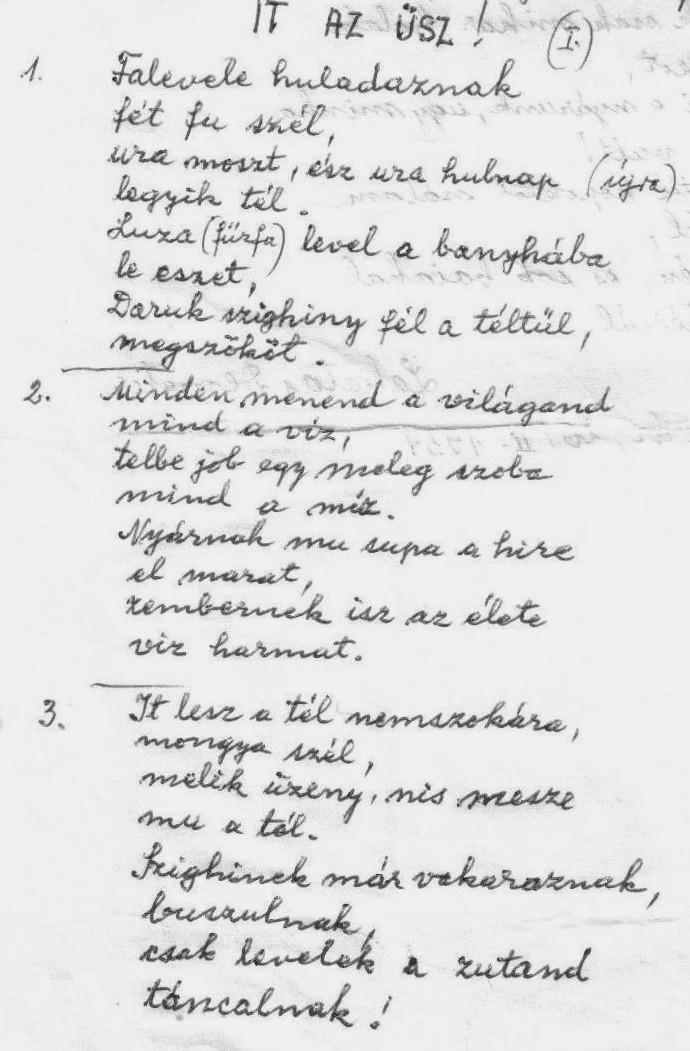 IT AZ ÜSZ! (I.)
1. Falevele huladaznak
fét fu szél,
ura moszt, ész ura hulnap (újra)
legyik tél.
Luza (fűzfa) level a banyhába
le eszet,
Daruk szighiny fél a téltül,
megszököt.
2. Minden menend a világand
mind a víz,
telbe job egy meleg szoba
mind a míz.
Nyárnak mu supa a hire
el marat,
zembernek isz az élete
viz harmat.
3. It lesz a tél nemszokára,
mongya szél,
melik üzeny, nis mesze
mu a tél.
Szighinek már vakaraznak,
buszulnak,
csak levelek a zutand
táncalnak!